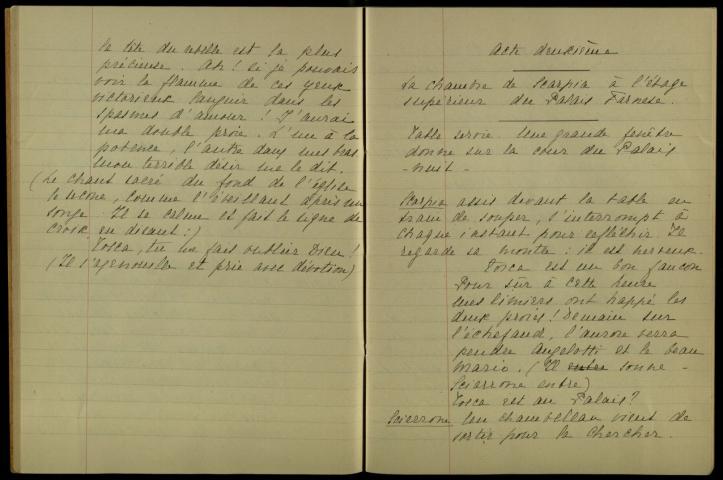 la tête du rebelle est la plus
précieuse. Ah! si je pouvais
voir la flamme de ces yeux
victorieux languir dans les
spasmes d'amour! J'aurai
ma double proie. L'un à la
potence, l'autre dans mes bras
mon terrible désir me le dit.
(Le chant sacré du fond de l'église
le secoue, comme l'éveillant d'après un
songe. Il se calme et fait le signe de
croix en disant:)
Tosca, tu me fais oublier Dieu!
(Il s'agenouille et prie avec dévotion)
Acte deuxième
La chambre de Scarpia à l'étage
supérieur du Palais Farnese.
Table servie. Une grande fenêtre
donne sur la cour du Palais
- nuit -
Scarpia assis devant la table en
train de souper, s'interrompt à
chaque instant pour réfléchir. Il
regarde sa montre: il est nerveux.
Tosca est un bon faucon
Pour sûr à cette heure
mes limiers ont happé les
deux proies! Demain sur
l'échafaud, l'aurore verra
pendre Angelotti et le beau
Mario. (Il entre sonne -
Sciarrone entre)
Tosca est au Palais?
Sciarrone Un chambellan vient de
sortir pour la chercher.